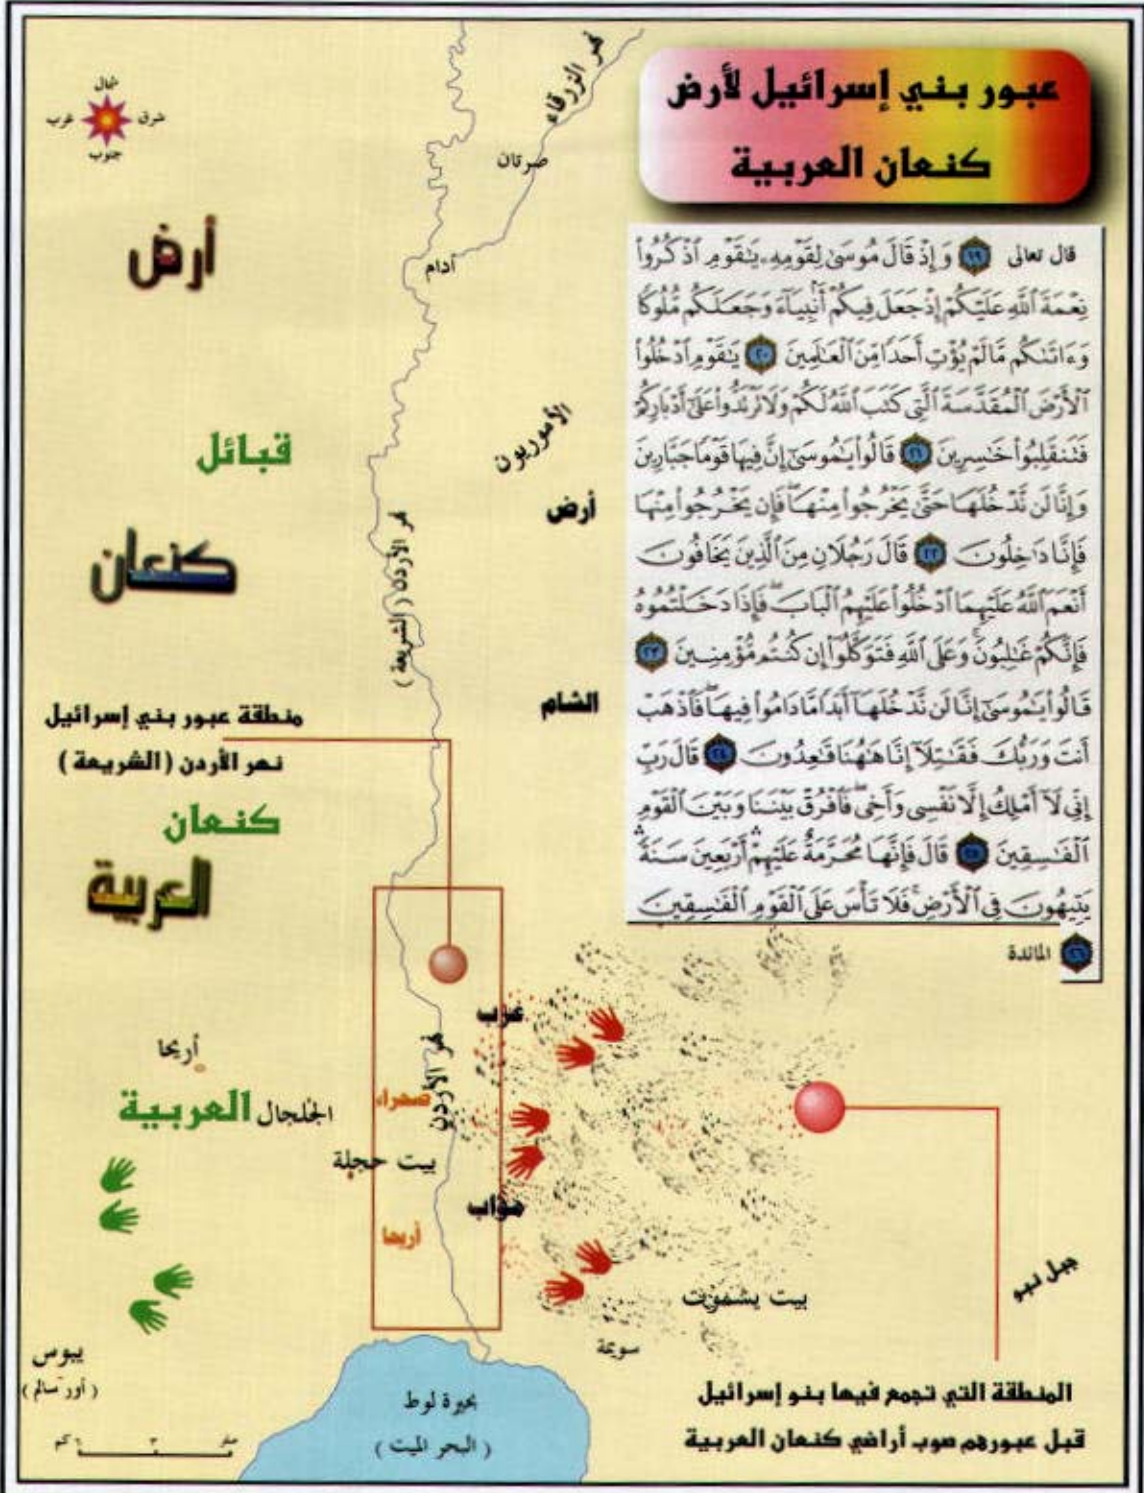 عبور بني إسرائيل لأرض
كنعان العربية
قال تعالى ١٩ وَإِذْ قَالَ مُوسَىٰ لِقَوْمِهِۦ يَٰقَوْمِ ٱذْكُرُوا۟
نِعْمَةَ ٱللَّهِ عَلَيْكُمْ إِذْ جَعَلَ فِيكُمْ أَنۢبِيَآءَ وَجَعَلَكُم مُّلُوكًا
وَءَاتَىٰكُم مَّا لَمْ يُؤْتِ أَحَدًا مِّنَ ٱلْعَٰلَمِينَ ٢٠ يَٰقَوْمِ ٱدْخُلُوا۟
ٱلْأَرْضَ ٱلْمُقَدَّسَةَ ٱلَّتِى كَتَبَ ٱللَّهُ لَكُمْ وَلَا تَرْتَدُّوا۟ عَلَىٰٓ أَدْبَارِكُمْ
فَتَنقَلِبُوا۟ خَٰسِرِينَ ٢١ قَالُوا۟ يَٰمُوسَىٰٓ إِنَّ فِيهَا قَوْمًا جَبَّارِينَ
وَإِنَّا لَن نَّدْخُلَهَا حَتَّىٰ يَخْرُجُوا۟ مِنْهَا فَإِن يَخْرُجُوا۟ مِنْهَا
فَإِنَّا دَٰخِلُونَ ٢٢ قَالَ رَجُلَانِ مِنَ ٱلَّذِينَ يَخَافُونَ
أَنْعَمَ ٱللَّهُ عَلَيْهِمَا ٱدْخُلُوا۟ عَلَيْهِمُ ٱلْبَابَ فَإِذَا دَخَلْتُمُوهُ
فَإِنَّكُمْ غَٰلِبُونَ وَعَلَى ٱللَّهِ فَتَوَكَّلُوٓا۟ إِن كُنتُم مُّؤْمِنِينَ ٢٣
قَالُوا۟ يَٰمُوسَىٰٓ إِنَّا لَن نَّدْخُلَهَآ أَبَدًا مَّا دَامُوا۟ فِيهَا فَٱذْهَبْ
أَنتَ وَرَبُّكَ فَقَٰتِلَآ إِنَّا هَٰهُنَا قَٰعِدُونَ ٢٤ قَالَ رَبِّ
إِنِّى لَآ أَمْلِكُ إِلَّا نَفْسِى وَأَخِى فَٱفْرُقْ بَيْنَنَا وَبَيْنَ ٱلْقَوْمِ
ٱلْفَٰسِقِينَ ٢٥ قَالَ فَإِنَّهَا مُحَرَّمَةٌ عَلَيْهِمْ أَرْبَعِينَ سَنَةً
يَتِيهُونَ فِى ٱلْأَرْضِ فَلَا تَأْسَ عَلَى ٱلْقَوْمِ ٱلْفَٰسِقِينَ
٢٦ المائدة
شمال
شرق
غرب
جنوب
نهر الزرقاء
صرتان
أدام
أرض
قبائل
كنعان
الأموريون
أرض
نهر الأردن (الشريعة)
الشام
منطقة عبور بني إسرائيل
نهر الأردن (الشريعة)
كنعان
العربية
عرب
أريحا
نهر الأردن
صحراء
العربية
الجلجال
بيت حجلة
مؤاب
أريحا
جبل نبو
بيت يشموت
سويمة
يبوس
(أور سالم)
بحيرة لوط
(البحر الميت)
المنطقة التي تجمع فيها بنو إسرائيل
قبل عبورهم صوب أراضي كنعان العربية
صفر ٣ ٦ كم